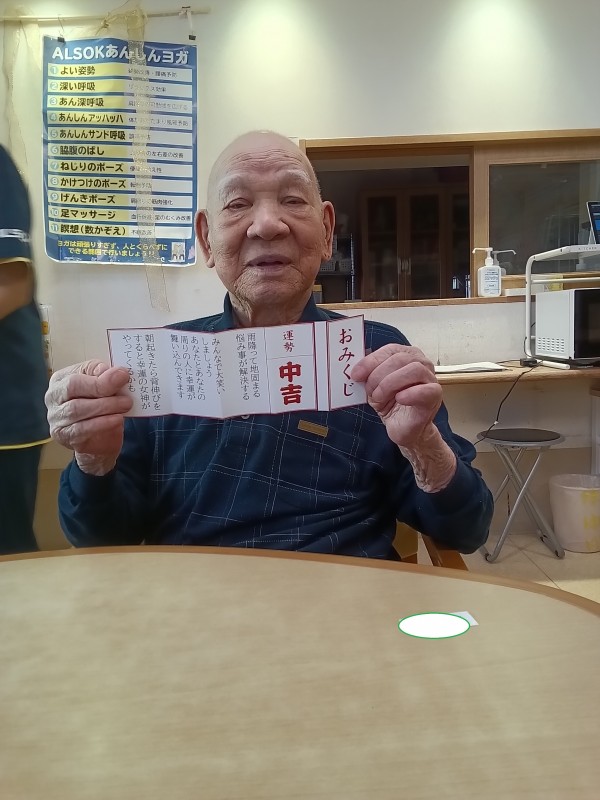 ALSOKあんしんヨガ
1 よい姿勢
2 深い呼吸
3 あん深呼吸
4 あんしんアッハッハ
5 あんしんサンド呼吸
6 脇腹のばし
7 ねじりのポーズ
8 かけつけのポーズ
9 げんきポーズ
10 足マッサージ
11 瞑想(数かぞえ)
ヨガは頑張りすぎず、人とくらべずに
できる範囲で行いましょう!
おみくじ
運勢
中吉
雨降って地固まる
悩み事が解決する
みんなで大笑い
しましょう
あなたとあなたの
周りの人に幸運が
舞い込んできます
朝起きたら背伸びを
すると幸運の女神が
やってくるかも